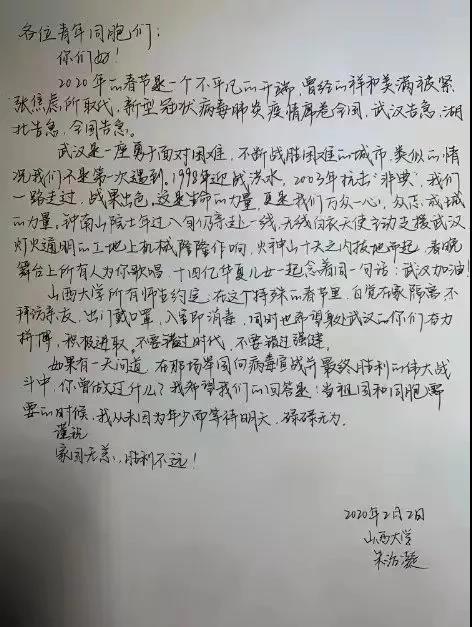 各位青年同胞们：
你们好！
2020年的春节是一个不平凡的开端，曾经的祥和美满被紧
张焦虑所取代，新型冠状病毒肺炎疫情席卷全国，武汉告急，湖
北告急，全国告急。
武汉是一座勇于面对困难，不断战胜困难的城市，类似的情
况我们不是第一次遇到。1998年迎战洪水，2003年抗击“非典”，我们
一路走过，战果出色，这是生命的力量，更是我们万众一心，众志成城
的力量，钟南山院士年过八旬仍奔赴一线，无数白衣天使主动支援武汉
灯火通明的土地上机械隆隆作响，火神山十天之内拔地而起，春晚
舞台上所有人为你歌唱，十四亿华夏儿女一起念着同一句话：武汉加油！
山西大学所有师生约定，在这个特殊的春节里，自觉在家隔离不
拜访亲友，出门戴口罩，入室即消毒，同时也希望身处武汉的你们奋力
拼搏，积极进取，不要错过时代，不要错过强健。
如果有一天问道，在那场举国向病毒宣战并最终胜利的伟大战
斗中，你曾做过什么？我希望我们的回答是：当祖国和同胞需
要的时候，我从未因为年少而等待明天，碌碌无为。
谨祝
家国无恙，胜利不远！
2020年2月2日
山西大学
朱治凝